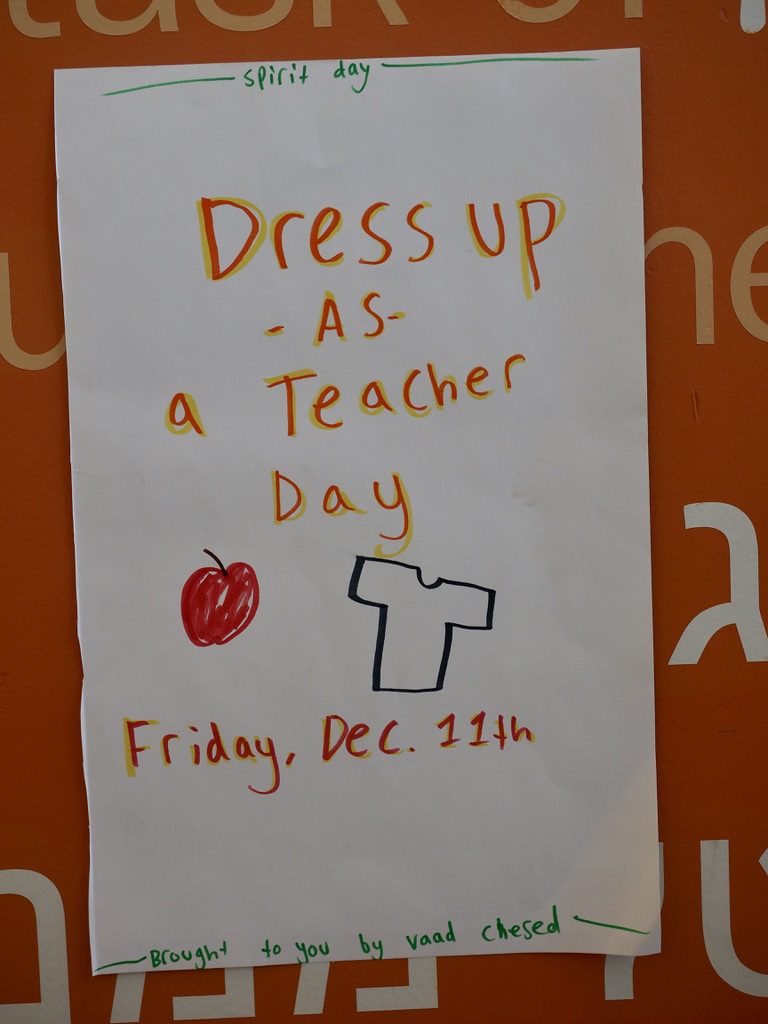 spirit day
Dress up
- AS -
a Teacher
Day
Friday, Dec. 11th
Brought to you by vaad chesed